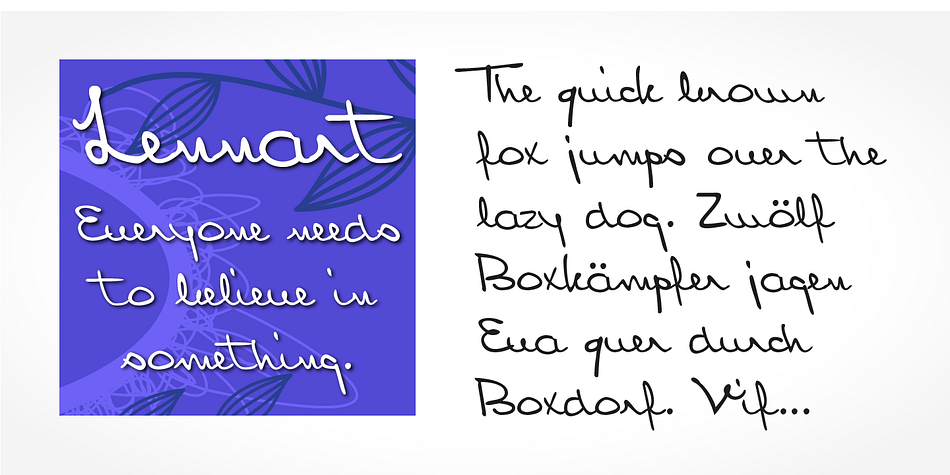 Lennart
Everyone needs
to believe in
something.
The quick brown
fox jumps over the
lazy dog. Zwölf
Boxkämpfer jagen
Eva quer durch
Boxdorf. Vif...